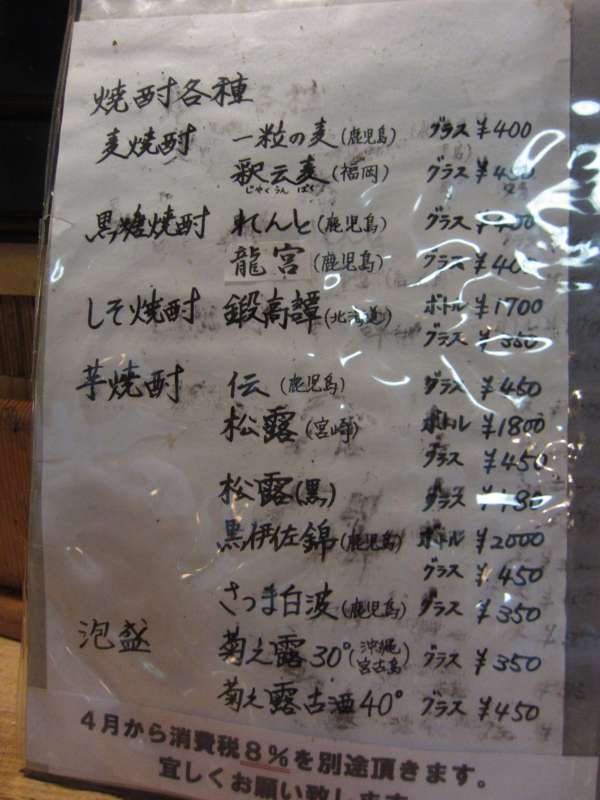 焼酎各種
麦焼酎 一粒の麦(鹿児島) グラス ¥400
釈云麦(福岡) グラス ¥450
じゃくうんばく
黒糖焼酎 れんと(鹿児島) グラス
龍宮(鹿児島) グラス ¥400
しそ焼酎 鍛高譚(北海道) ボトル ¥1700
グラス ¥350
芋焼酎 伝(鹿児島) グラス ¥450
松露(宮崎) ボトル ¥1800
グラス ¥450
松露(黒) グラス
黒伊佐錦(鹿児島) ボトル ¥2000
グラス ¥450
さつま白波(鹿児島) グラス ¥350
泡盛 菊之露30°(沖縄宮古島) グラス ¥350
菊之露古酒40° グラス ¥450
4月から消費税8%を別途頂きます。
宜しくお願い致します